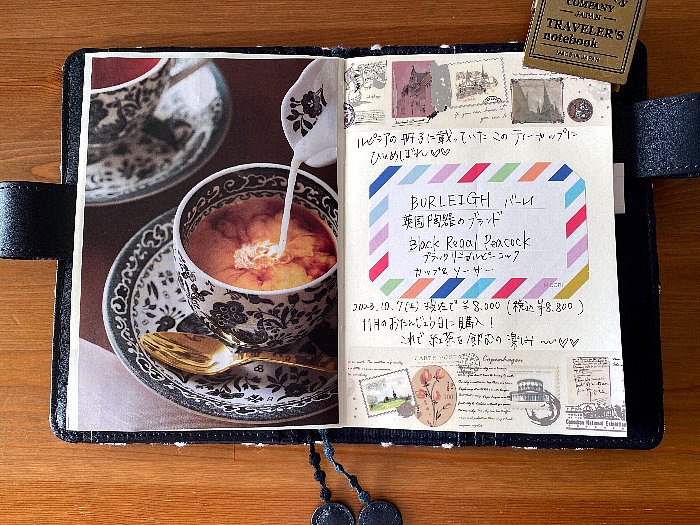 COMPANY
JAPAN
TRAVELER'S
notebook
MADE IN JAPAN
ルピシアの冊子に載っていたこのティーカップに
ひとめぼれ♡♡
BURLEIGH バーレイ
英国陶器のブランド
Black Regal Peacock
ブラックリーガルピーコック
カップ&ソーサー
MIDORI
2023.10.7(土)現在で ¥8.000 (税込¥8.800)
11月のおたんじょう日に購入!
これで紅茶を飲むの楽しみ〜♡♡
CARTE POSTALE
Copenhagen
Canadian National Exhibition